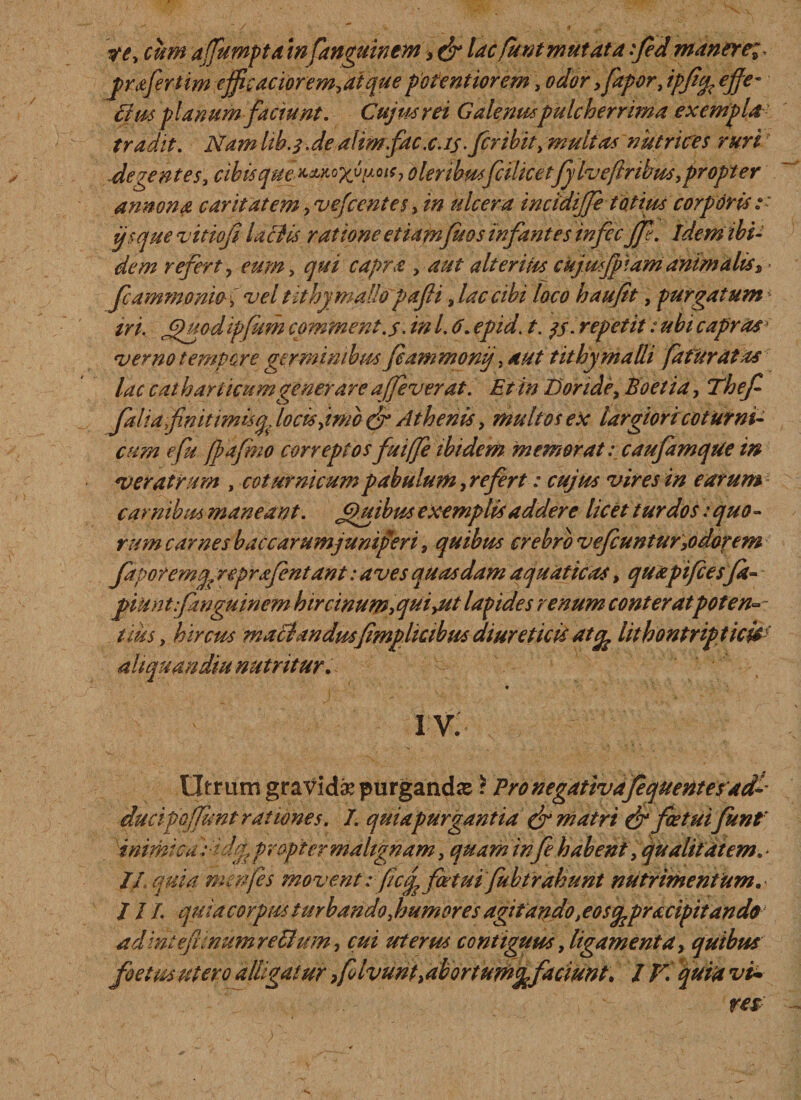 re, cùm aſſumpta in ſanguinem, & lac ſunt mutata: ſed manere;
præſertim efficaciorem, atque potentiorem, odor, ſapor, ipſiq́; effe-
ctus planum faciunt. Cujus rei Galenus pulcherrima exempla
tradit. Nam lib. 3. de alim. fac. c. 15. ſcribit, multas nutrices ruri
degentes, cibisque κακοχύμοις, oleribus ſcilicet ſylveſtribus, propter
annonæ caritatem, veſcentes, in ulcera incidiſſe totius corpóris:
ijsque vitioſi lactis ratione etiam ſuos infantes infeciſſe. Idem ibi-
dem refert, eum, qui capræ, aut alterius cujuſpiam animalis,
ſcammonio, vel tithymallo paſti, lac cibi loco hauſit, purgatum
iri. Quod ipſum comment. 5. in l. 6. epid. t. 35. repetit: ubi capras
verno tempore germinibus ſcammonij, aut tithymalli ſaturatas
lac catharticum generare aſſeverat. Et in Doride, Boetia, Theſ-
ſalia, finitimisq́; locis, imò & Athenis, multos ex largiori coturni-
cum eſu ſpaſmo correptos fuiſſe ibidem memorat: cauſamque in
veratrum, coturnicum pabulum, refert: cujus vires in earum
carnibus maneant. Quibus exemplis addere licet turdos: quo-
rum carnes baccarum juniperi, quibus crebrò veſcuntur, odorem
ſaporemq́; repræſentant: aves quasdam aquaticas, quæ piſces ſa-
piunt: ſanguinem hircinum, qui, ut lapides renum conterat poten-
tius, hircus mactandus ſimplicibus diureticis atq́; lithontripticis
aliquandiu nutritur.
IV.
Utrum gravidæ purgandæ? Pro negativa ſequentes ad-
duci poſſunt rationes. I. quia purgantia & matri & fœtui ſunt
inimica: idq́; propter malignam, quam in ſe habent, qualitatem.
II. quia menſes movent: ſicq́; fœtui ſubtrahunt nutrimentum.
III. quia corpus turbando, humores agitando, eosq́; præcipitando
ad inteſtinum rectum, cui uterus contiguus, ligamenta, quibus
foetus utero alligatur, ſolvunt, abortumq́; faciunt. IV. quia vi-
res